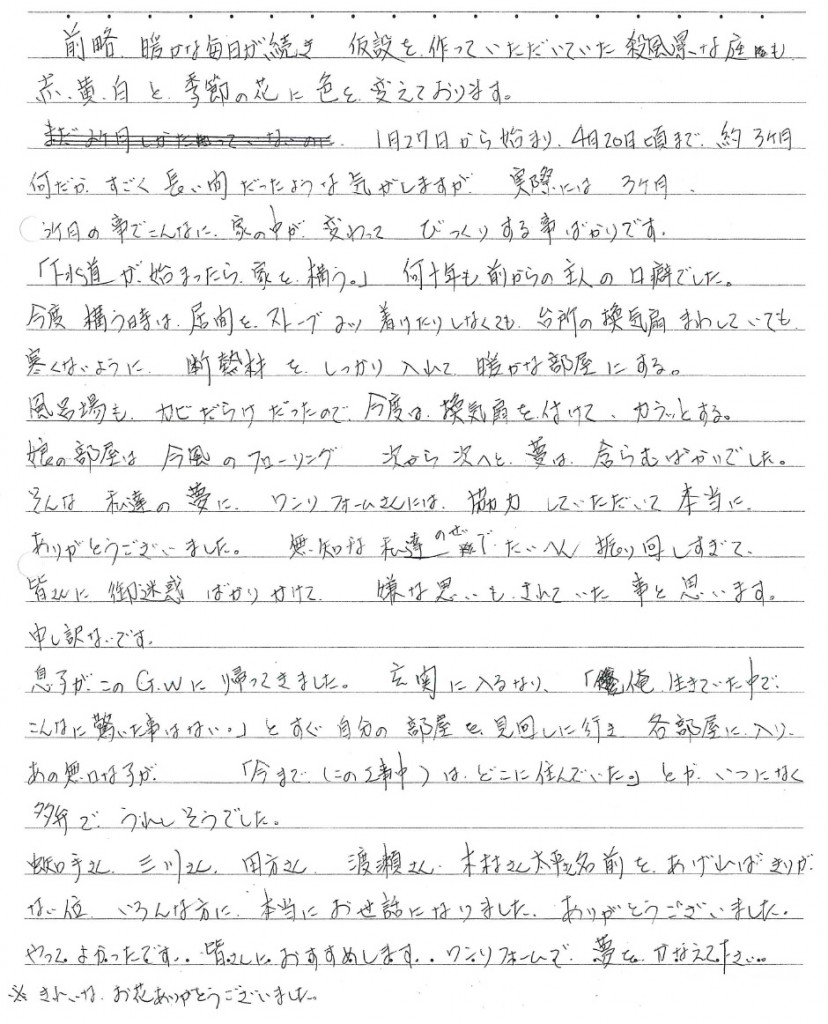 前略 暖かな毎日が続き 仮設を作っていただいていた殺風景な庭も
赤、黄、白と季節の花に色を変えております。
まだ3ケ月しかたっていないのに 1月27日から始まり、4月20日頃まで、約3ケ月
何だか、すごく長い間だったような気がしますが 実際には3ケ月、
3ケ月の事でこんなに、家の中が、変わって びっくりする事ばかりです。
「下水道が、始まったら、家を、構う。」 何十年も前からの主人の口癖でした。
今度構う時は、居間を、ストーブ 着けたりしなくても、台所の換気扇まわしていても、
寒くないように、 断熱材を、しっかり入れて暖かな部屋にする。
風呂場も、カビだらけだったので、今度は、換気扇を付けて、カラッとする。
娘の部屋は今風のフローリング 次から次へと、夢は、含らむばかりでした。
そんな 私達の夢に、ワンリフォームさんには、協力していただいて本当に、
ありがとうございました。 無知な私達のせいでたいへん振り回しすぎて、
皆さんに御迷惑ばかりかけて 嫌な思いも、されていた事と思います。
申し訳ないです。
息子が、このG.Wに帰ってきました。 玄関に入るなり、「俺、生きていた中で、
こんなに驚いた事はない。」とすぐ自分の部屋を、見回しに行き、各部屋に入り、
あの無口な子が、 「今まで(この工事中)は、どこに住んでいた。」とか、いつになく
多弁で、うれしそうでした。
三川さん、田方さん、渡瀬さん、木村さん 名前を、あげればきりが、
ない位、いろんな方に、本当にお世話になりました、ありがとうございました。
やって、よかったです。、皆さんに、おすすめします。、ワンリフォームで、夢を、かなえて下さい。
※ きれいな、お花ありがとうございました。